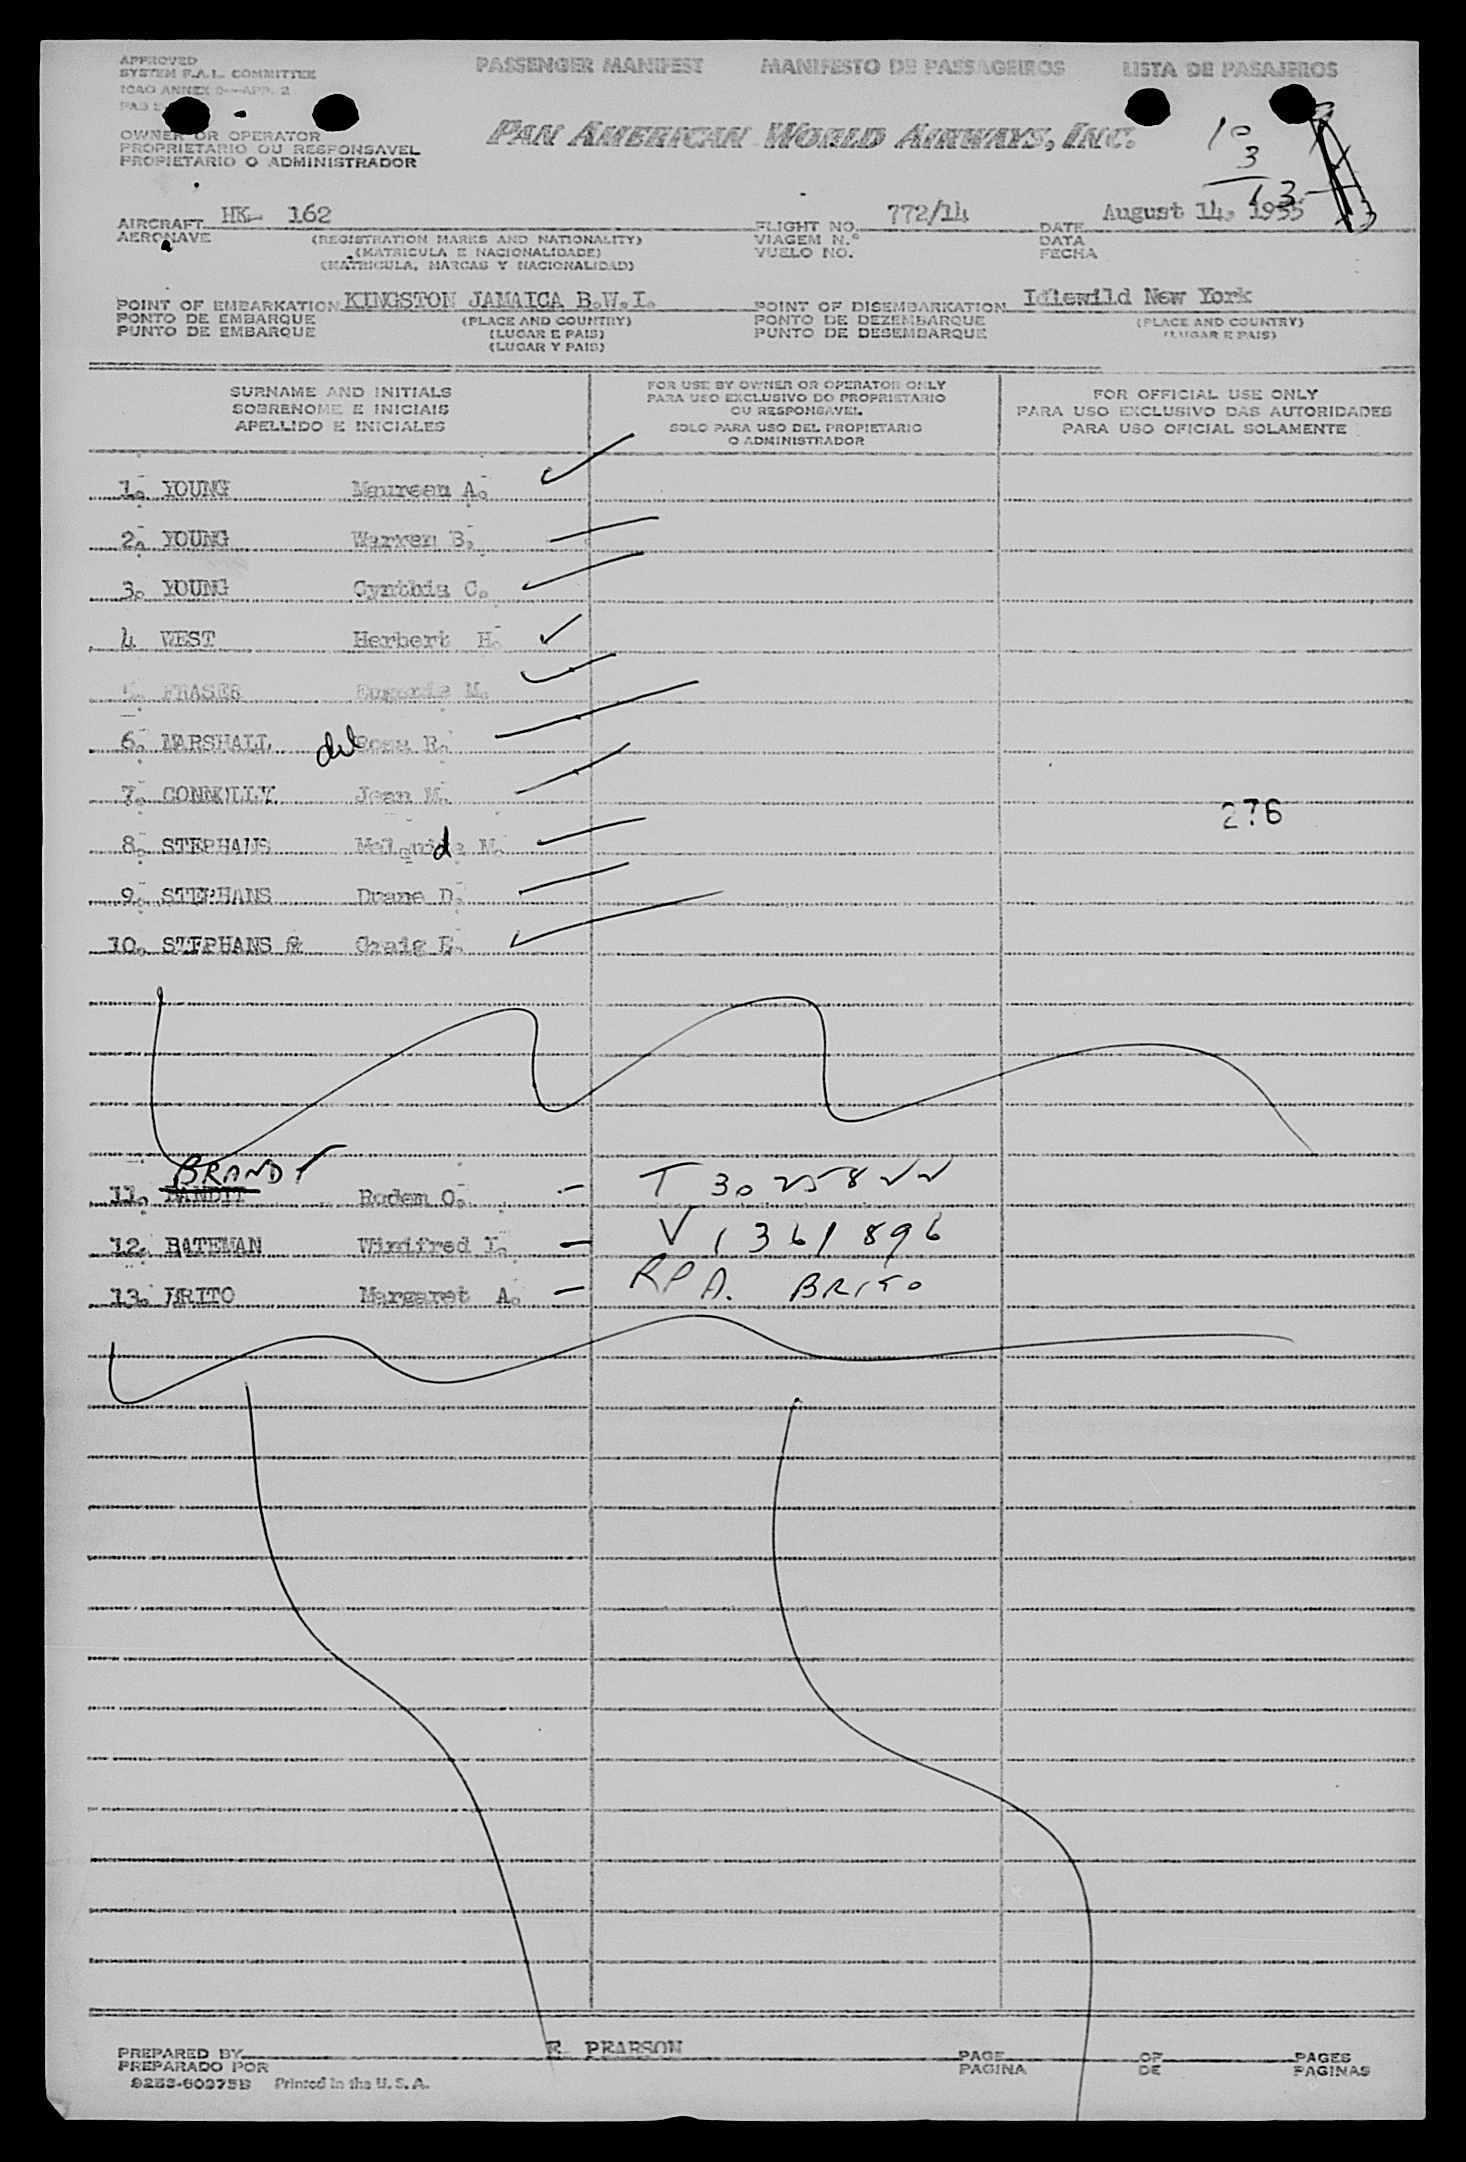 APPROVED
SYSTEM F.A.L. COMMITTEE
ICAO ANNEX 9—APP. 2
PASSENGER MANIFEST MANIFESTO DE PASSAGEIROS LISTA DE PASAJEROS
OWNER OR OPERATOR
PROPRIETARIO OU RESPONSAVEL
PROPIETARIO O ADMINISTRADOR
PAN AMERICAN WORLD AIRWAYS, INC.
10
3
13
AIRCRAFT HK- 162 FLIGHT NO. 772/14 DATE August 14, 1955
AERONAVE (REGISTRATION MARKS AND NATIONALITY) VIAGEM N.º DATA
(MATRICULA E NACIONALIDADE) VUELO NO. FECHA
(MATRICULA, MARCAS Y NACIONALIDAD)
POINT OF EMBARKATION KINGSTON JAMAICA B.W.I. POINT OF DISEMBARKATION Idlewild New York
PONTO DE EMBARQUE (PLACE AND COUNTRY) PONTO DE DEZEMBARQUE (PLACE AND COUNTRY)
PUNTO DE EMBARQUE (LUGAR E PAIS) PUNTO DE DESEMBARQUE (LUGAR E PAIS)
(LUGAR Y PAIS)
SURNAME AND INITIALS
SOBRENOME E INICIAIS
APELLIDO E INICIALES
FOR USE BY OWNER OR OPERATOR ONLY
PARA USO EXCLUSIVO DO PROPRIETARIO
OU RESPONSAVEL
SOLO PARA USO DEL PROPIETARIO
O ADMINISTRADOR
FOR OFFICIAL USE ONLY
PARA USO EXCLUSIVO DAS AUTORIDADES
PARA USO OFICIAL SOLAMENTE
1. YOUNG Maureen A.
2. YOUNG Warren B.
3. YOUNG Cynthia C.
4 WEST Herbert H.
5. FRASER Eugenie M.
6. MARSHALL del Rosa R.
7. CONNOLLY Jean M.
276
8. STEPHANS N.
9. STEPHANS Duane D.
10. STEPHANS Craig E.
BRANDT
11. BANDIT Rodem O. T 3025822
12. BATEMAN Winifred I. V 1361896
13. BRITO Margaret A. RPA. BRITO
PREPARED BY E. PEARSON PAGE OF PAGES
PREPARADO POR PAGINA DE PAGINAS
Printed in the U.S.A.